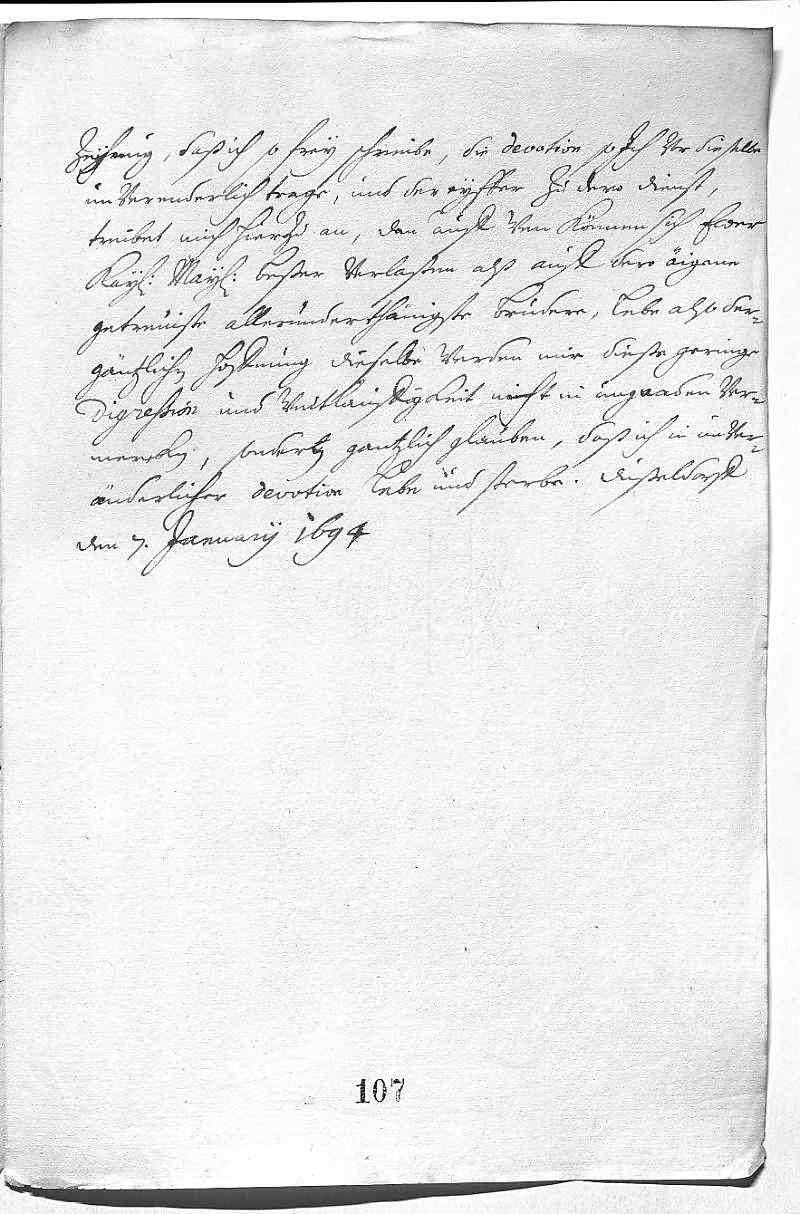 Zeihung, daß ich so frey schreibe, die devotion so Ich vor dieselbe
unverenderlich trage, und der eyffer zu dero dienst,
treibet mich hierzu an, dan auff wen können sich Ewer
Kayß: Mayß: beßer verlaßen alß auff dero äigene
getreuiste allerunderthänigste brüdere, lebe also der-
gäntzlichen hoffnung dieselbe werden mir dieße geringe
Digression und weitläuffigkeit nicht in ungnaden ver-
mercken, sondern gantzlich glauben, daß ich in unver-
änderlicher devotion lebe und sterbe. Düßeldorff
den 7. January 1694
107